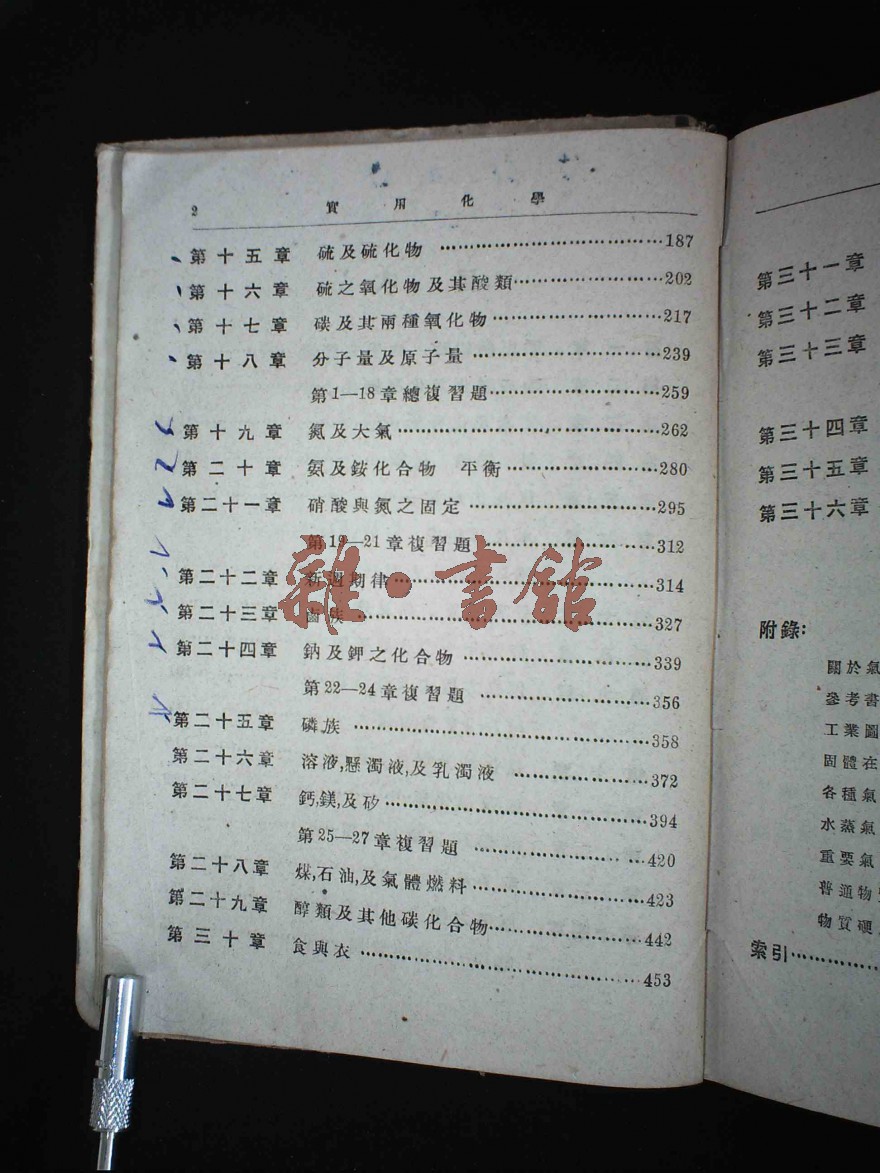 2 實用化學
第十五章 硫及硫化物 ……………………………187
第十六章 硫之氧化物及其酸類……………………202
第十七章 碳及其兩種氧化物………………………217
第十八章 分子量及原子量 …………………………239
第1—18章總複習題…………………………259
第十九章 氮及大氣…………………………………262
第二十章 氨及銨化合物 平衡……………………280
第二十一章 硝酸與氮之固定………………………295
第19—21章複習題 …………………………312
第二十二章 新週期律………………………………314
第二十三章 鹵族 ……………………………………327
第二十四章 鈉及鉀之化合物 ………………………339
第22—24章複習題 …………………………356
第二十五章 磷族 ……………………………………358
第二十六章 溶液,懸濁液,及乳濁液 ………………372
第二十七章 鈣,鎂,及矽………………………………394
第25—27章複習題 …………………………420
第二十八章 煤,石油,及氣體燃料……………………423
第二十九章 醇類及其他碳化合物…………………442
第三十章 食與衣 ……………………………………453
雜·書館
第三十一章
第三十二章
第三十三章
第三十四章
第三十五章
第三十六章
附錄:
關於氣
參考書
工業圖
固體在
各種氣
水蒸氣
重要氣
普通物
物質硬
索引……………